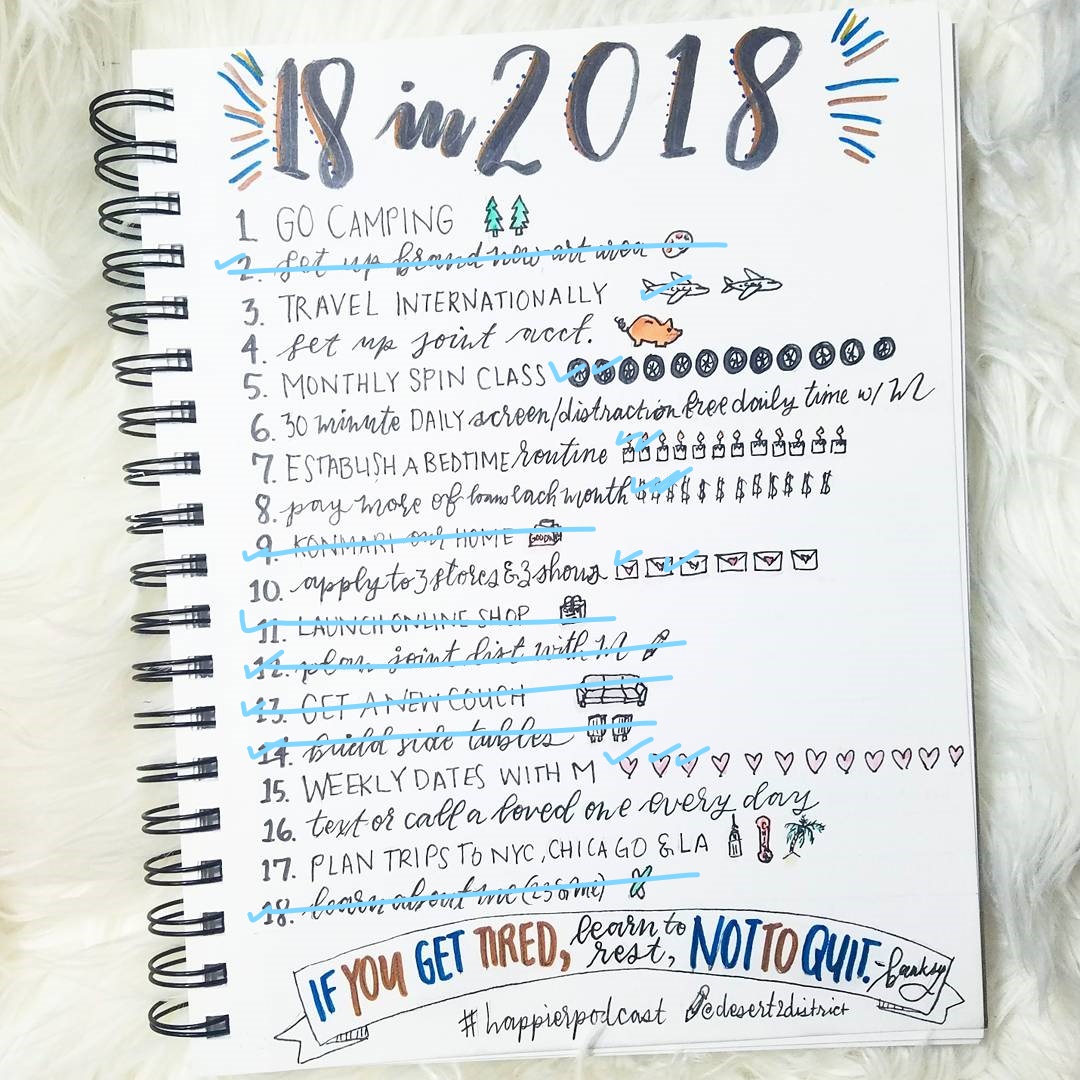 18 in 2018
1. GO CAMPING
2. set up brand new art area
3. TRAVEL INTERNATIONALLY
4. set up joint acct.
5. MONTHLY SPIN CLASS
6. 30 minute DAILY screen/distraction free daily time w/ M
7. ESTABLISH A BEDTIME routine
8. pay more of loans each month $ $ $ $ $ $ $ $ $ $ $ $
9. KONMARI our HOME
10. apply to 3 stores & 3 shows
11. LAUNCH ONLINE SHOP
12. plan joint list with M
13. GET A NEW COUCH
14. build side tables
15. WEEKLY DATES WITH M
16. text or call a loved one every day
17. PLAN TRIPS TO NYC, CHICAGO & LA
18. learn about me (23 & me)
IF YOU GET TIRED, learn to rest, NOT TO QUIT. -banksy
#happierpodcast @desert2district